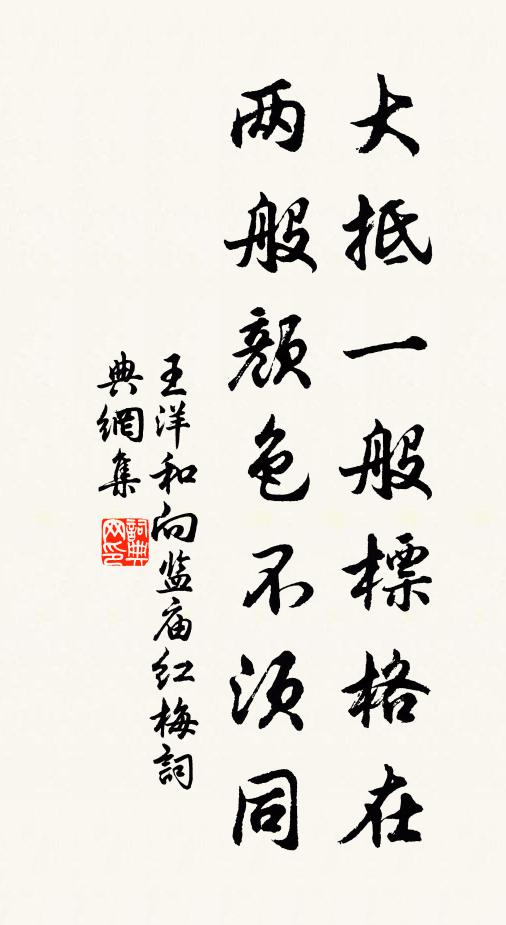 大抵一般標格在
两般颜色不须同
王洋和向监庙红梅詞
典網集
詞典网印